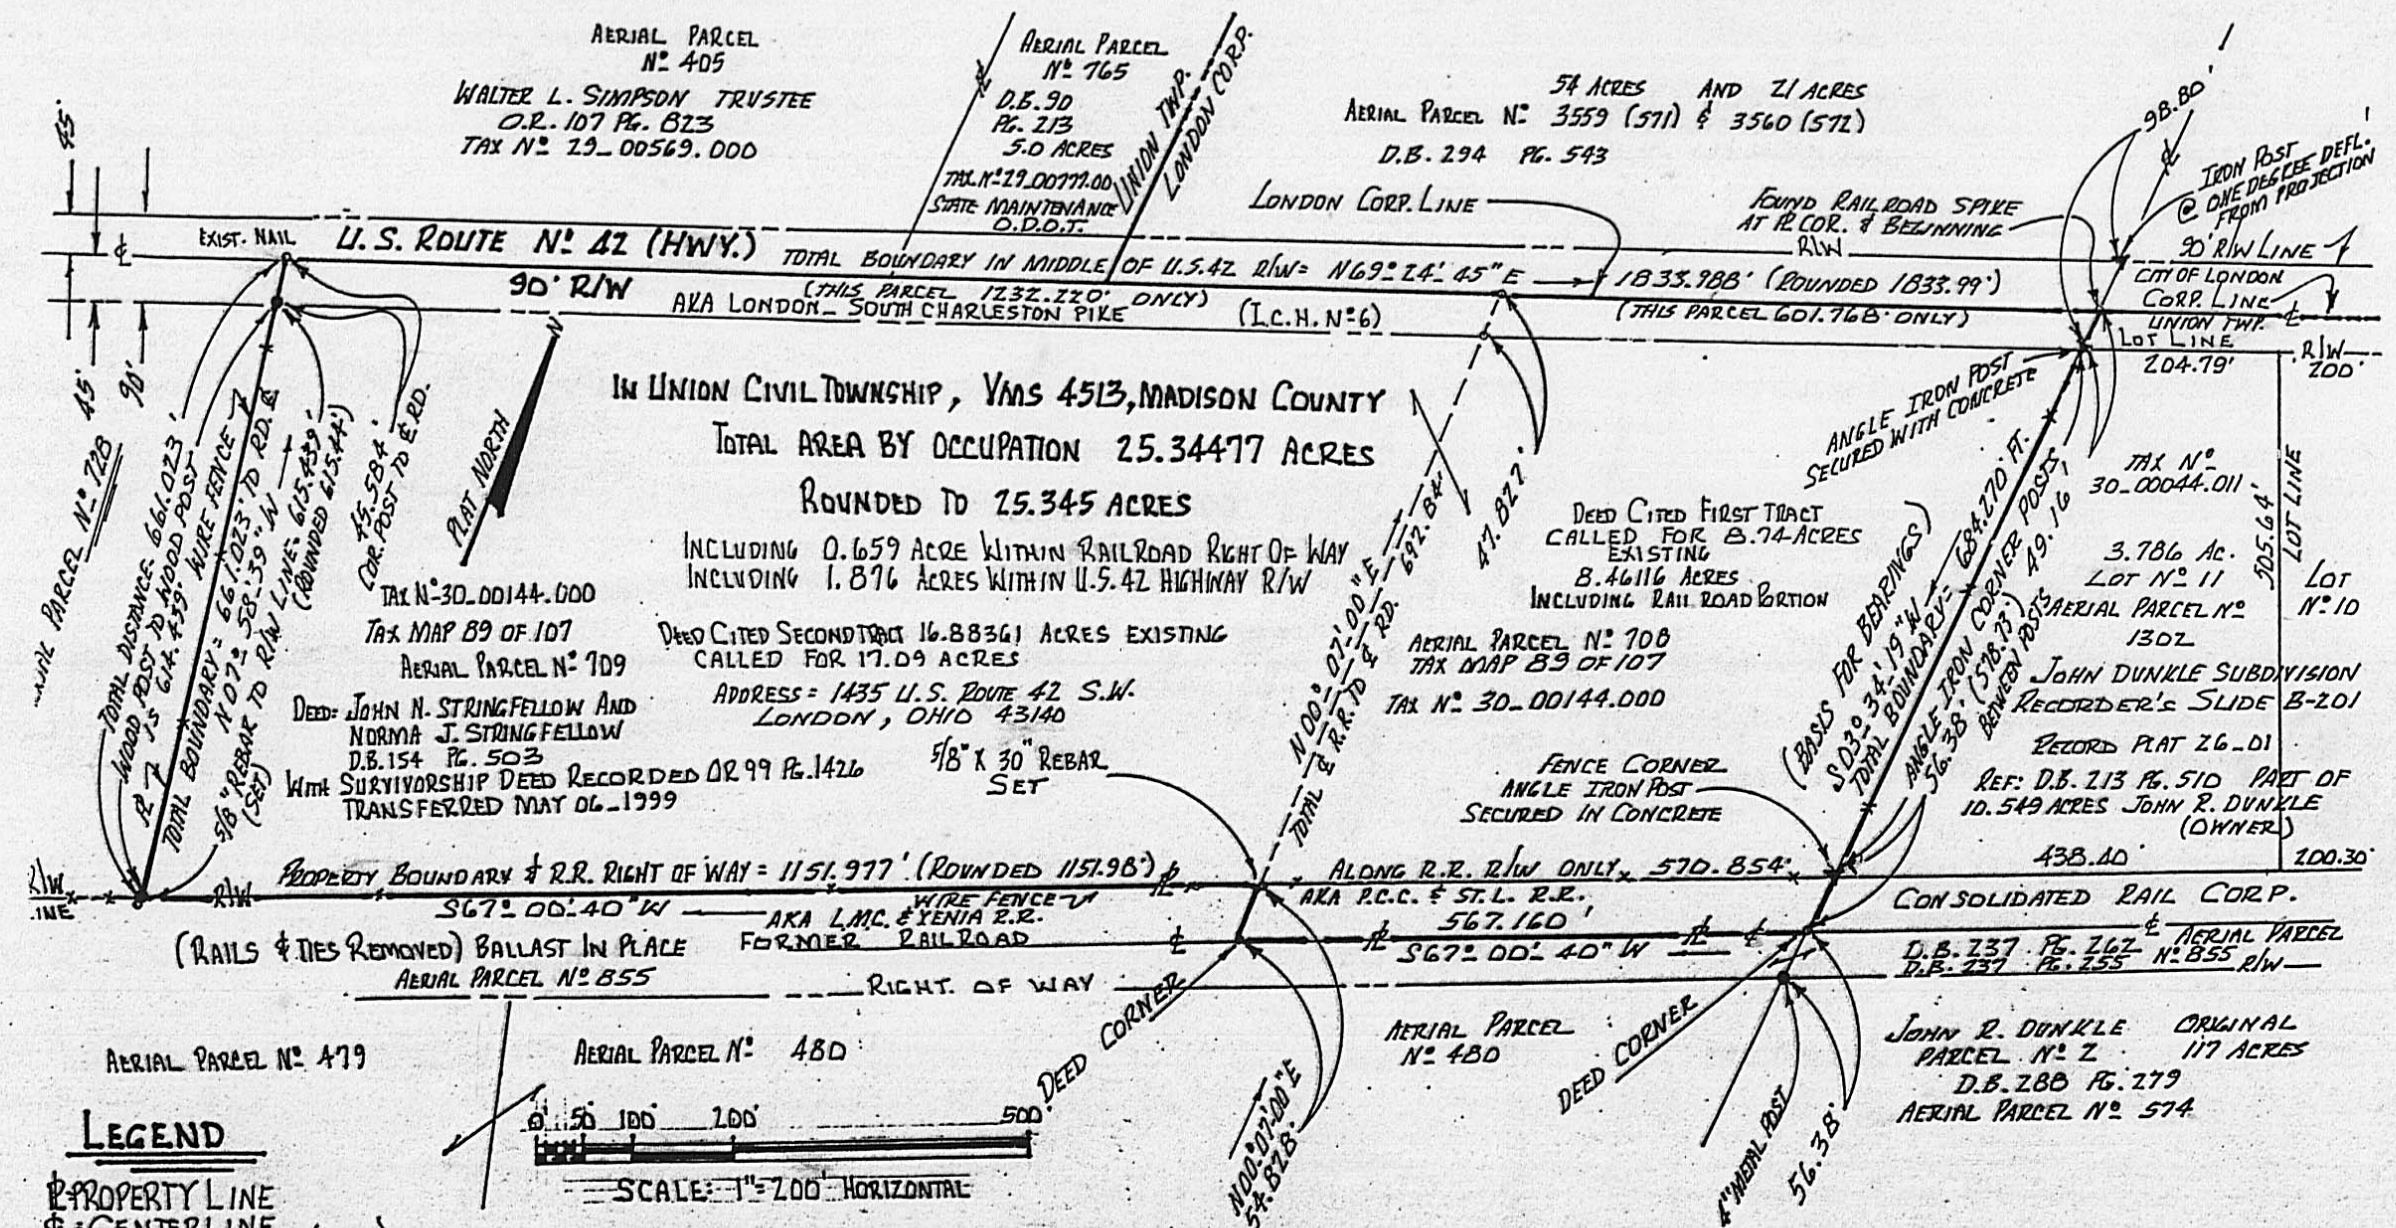 AERIAL PARCEL
Nº 405
WALTER L. SIMPSON TRUSTEE
O.R. 107 PG. 823
TAX Nº 29_00569.000
AERIAL PARCEL
Nº 765
D.B. 90
PG. 213
5.0 ACRES
TAX Nº 29_00777.00
STATE MAINTENANCE
O.D.O.T.
UNION TWP.
LONDON CORP.
54 ACRES AND 21 ACRES
AERIAL PARCEL Nº 3559 (571) & 3560 (572)
D.B. 294 PG. 543
LONDON CORP. LINE
FOUND RAILROAD SPIKE
AT PL COR. & BEGINNING
R/W
98.80'
℄
IRON POST
@ ONE DEGREE DEFL.
FROM PROJECTION
90' R/W LINE
CITY OF LONDON
CORP. LINE
UNION TWP.
℄
LOT LINE
R/W
204.79'
200'
45'
℄
EXIST. NAIL
U.S. ROUTE Nº 42 (HWY.)
TOTAL BOUNDARY IN MIDDLE OF U.S. 42 R/W = N69º 24' 45" E
1833.988' (ROUNDED 1833.99')
90' R/W
(THIS PARCEL 1232.220' ONLY)
(THIS PARCEL 601.768' ONLY)
AKA LONDON_SOUTH CHARLESTON PIKE
(I.C.H. Nº 6)
45'
90'
PARCEL Nº 728
TOTAL DISTANCE: 661.023'
WOOD POST TO WOOD POST
IS 614.439' WIRE FENCE
PL
TOTAL BOUNDARY = 661.023' TO RD. ℄
N07º 58' 39" W
5/8" REBAR TO R/W LINE: 615.439'
(SET)
(ROUNDED 615.44')
45.584'
COR. POST TO ℄ RD.
PLAT NORTH
N
IN UNION CIVIL TOWNSHIP, VMS 4513, MADISON COUNTY
TOTAL AREA BY OCCUPATION 25.34477 ACRES
ROUNDED TO 25.345 ACRES
INCLUDING 0.659 ACRE WITHIN RAILROAD RIGHT OF WAY
INCLUDING 1.876 ACRES WITHIN U.S. 42 HIGHWAY R/W
TAX Nº 30_00144.000
TAX MAP 89 OF 107
AERIAL PARCEL Nº 709
DEED CITED SECOND TRACT 16.88361 ACRES EXISTING
CALLED FOR 17.09 ACRES
ADDRESS = 1435 U.S. ROUTE 42 S.W.
LONDON, OHIO 43140
DEED: JOHN N. STRINGFELLOW AND
NORMA J. STRINGFELLOW
D.B. 154 PG. 503
WITH SURVIVORSHIP DEED RECORDED OR 99 PG. 1426
TRANSFERRED MAY 06_1999
5/8" X 30" REBAR
SET
N00º 07' 00" E 692.84'
TOTAL ℄ R.R. TO ℄ RD.
47.827'
DEED CITED FIRST TRACT
CALLED FOR 8.74 ACRES
EXISTING
8.46116 ACRES
INCLUDING RAIL ROAD PORTION
AERIAL PARCEL Nº 708
TAX MAP 89 OF 107
TAX Nº 30_00144.000
FENCE CORNER
ANGLE IRON POST
SECURED IN CONCRETE
ANGLE IRON POST
SECURED WITH CONCRETE
(BASIS FOR BEARINGS)
S03º 34' 19" W
TOTAL BOUNDARY = 684.270 FT.
ANGLE IRON CORNER POSTS
56.38' (578.73')
BETWEEN POSTS
49.16'
TAX Nº
30_00044.011
3.786 AC.
LOT Nº 11
AERIAL PARCEL Nº
1302
505.64'
LOT LINE
LOT
Nº 10
JOHN DUNKLE SUBDIVISION
RECORDER'S SLIDE B-201
RECORD PLAT 26_01
REF: D.B. 213 PG. 510 PART OF
10.549 ACRES JOHN R. DUNKLE
(OWNER)
438.40'
200.30'
R/W
LINE
R/W
PROPERTY BOUNDARY & R.R. RIGHT OF WAY = 1151.977' (ROUNDED 1151.98') PL
S67º 00' 40" W
WIRE FENCE
AKA L.M.C. & XENIA R.R.
(RAILS & TIES REMOVED) BALLAST IN PLACE FORMER RAILROAD
℄
AERIAL PARCEL Nº 855
RIGHT OF WAY
ALONG R.R. R/W ONLY 570.854'
AKA P.C.C. & ST. L. R.R.
567.160'
PL
S67º 00' 40" W
PL ℄
CONSOLIDATED RAIL CORP.
℄ AERIAL PARCEL
Nº 855
D.B. 237 PG. 262
D.B. 237 PG. 255
R/W
AERIAL PARCEL Nº 479
AERIAL PARCEL Nº 480
DEED CORNER
N00º 07' 00" E
54.828'
AERIAL PARCEL
Nº 480
DEED CORNER
4" METAL POST
56.38'
JOHN R. DUNKLE ORIGINAL
PARCEL Nº 2 117 ACRES
D.B. 288 PG. 279
AERIAL PARCEL Nº 574
LEGEND
PL PROPERTY LINE
℄ = CENTERLINE
0' 50' 100' 200' 500'
SCALE: 1"=200' HORIZONTAL